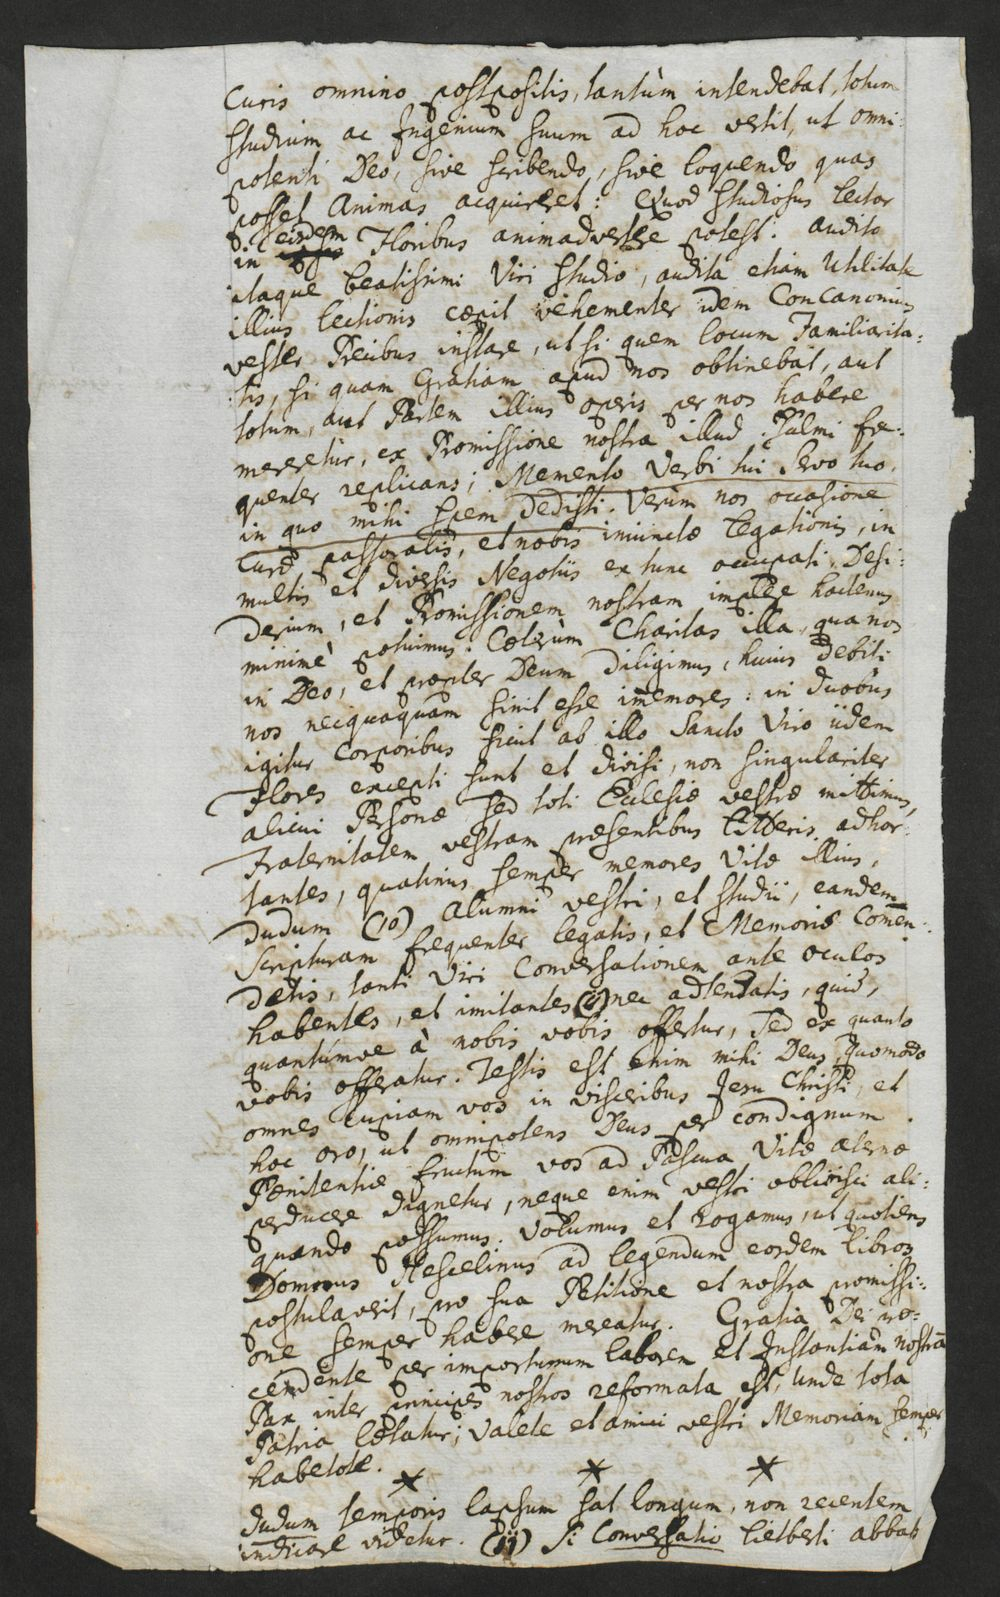 Curis omnino postpositis, tantùm intendebat, totum
studium ac Ingenium suum ad hoc vertit, ut omni:
potenti Deo, sive scribendo, sive loquendo quas
posset Animas acquireret: Quod studiosus Lector
in eisdem Floribus animadvertere potest: audito
itaque beatissimi Viri studio, audita etiam Utilitate
illius lectionis cœpit vehementer idem Concanonicus
vester Precibus instare, ut si quem locum Familiarita:
tis, si quam Gratiam apud nos obtinebat, aut
totum, aut Partem illius operis per nos habere
mereretur, ex Promissione nostra illud Psalmi fre:
quenter replicans; Memento Verbi tui servo tuo,
in quo mihi spem dedisti. Verùm nos occasione
Curæ pastoralis, et nobis iniunctæ legationis, in
multis et diversis Negotiis ex tunc occupati, Desi:
derium, et Promissionem nostram implere hactenus
minimè potuimus. Cœterùm Charitas illa, qua nos
in Deo, et propter Deum diligimus, huius debiti
nos nequaquam sinit esse immemores: in duobus
igitur Corporibus sicut ab illo Sancto Viro iidem
Flores excepti sunt et divisi, non singulariter
alicui Personæ sed toti Ecclesiæ vestræ mittimus,
Fraternitatem vestram præsentibus litteris adhor:
tantes, quatinus semper memores Vitæ illius,
dudum (10) alumni vestri, et studii, eandem
Scripturam frequenter legatis, et Memoriæ Comen:
detis, tanti Viri Conversationem ante oculos
habentes, et imitantes (ii) nec adtendatis, quid,
quantúmve à nobis vobis offertur, sed ex quanto
vobis offeratur. Testis est enim mihi Deus, quomodo
omnes cupiam vos in visceribus Jesu Christi, et
hoc oro, ut omnipotens Deus per condignum
Pœnitentiæ fructum vos ad Pascua Vitæ æternæ
perducere dignetur, neque enim vestri oblivisci ali:
quando possumus. Volumus et rogamus, ut quotiens
Dominus Hescelinus ad legendum eosdem libros
postulaverit, pro sua Petitione et nostra promissi:
one semper habere mereatur. Gratia Dei præ:
cedente per importunum laborem et Instantiam nostrã
Pax inter principes nostros reformata est, Unde tota
Patria lætatur; Valete et amici vestri Memoriam semper
habetote.
* * *
dudum temporis lapsum sat longum, non recentem
indicare videtur. (ii) Si Conversatio lietberti abbat